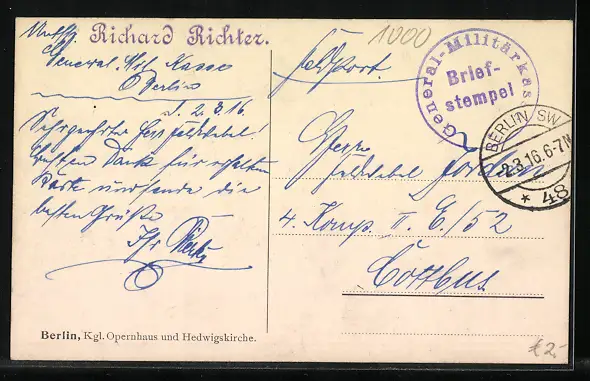 Richard Richter.
General Mil. Kasse
Berlin
d. 2.3.16.
Sehrgeehrter Feldwebel.
Besten Dank für erhaltene
Karte und sende die
besten Grüße
Ihr Richter
Berlin, Kgl. Opernhaus und Hedwigskirche.
1000
Feldpost.
General-Militärkasse
Brief-
stempel
BERLIN SW
-2.3.16.6-7N
* 48
Herrn
Feldwebel Jordan
4. Komp. II. E./52
Cottbus
€2,-